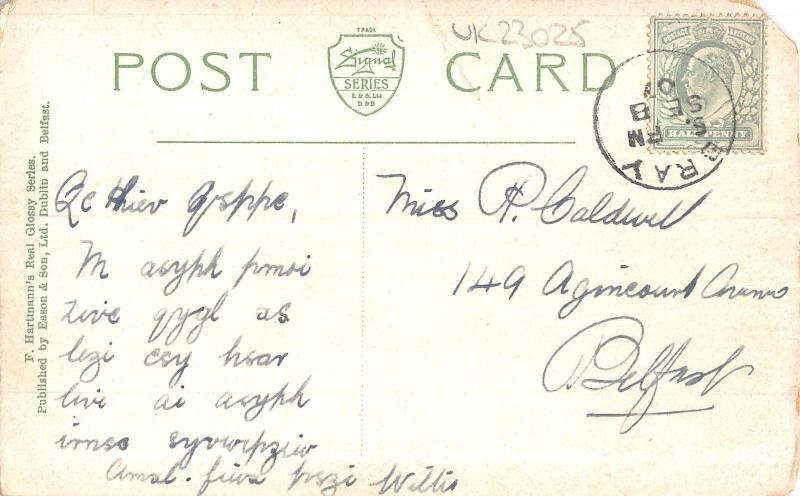 POST CARD
TRADE
Signal
SERIES
E & S. Ltd
D & B
UK23025
POSTAGE REVENUE
HALF PENNY
RAL
PM
SE 8
07
F. Hartmann's Real Glossy Series.
Published by Eason & Son, Ltd. Dublin and Belfast.
Qc hiev Qsppc,
M asyph pmoi
zivc qygl xs
lezi csy hsar
livi ai asyph
irnsc syvwipziw
Amxl. fiwx pszi Willis
Miss P. Caldwell
149 Agincourt Avenue
Belfast